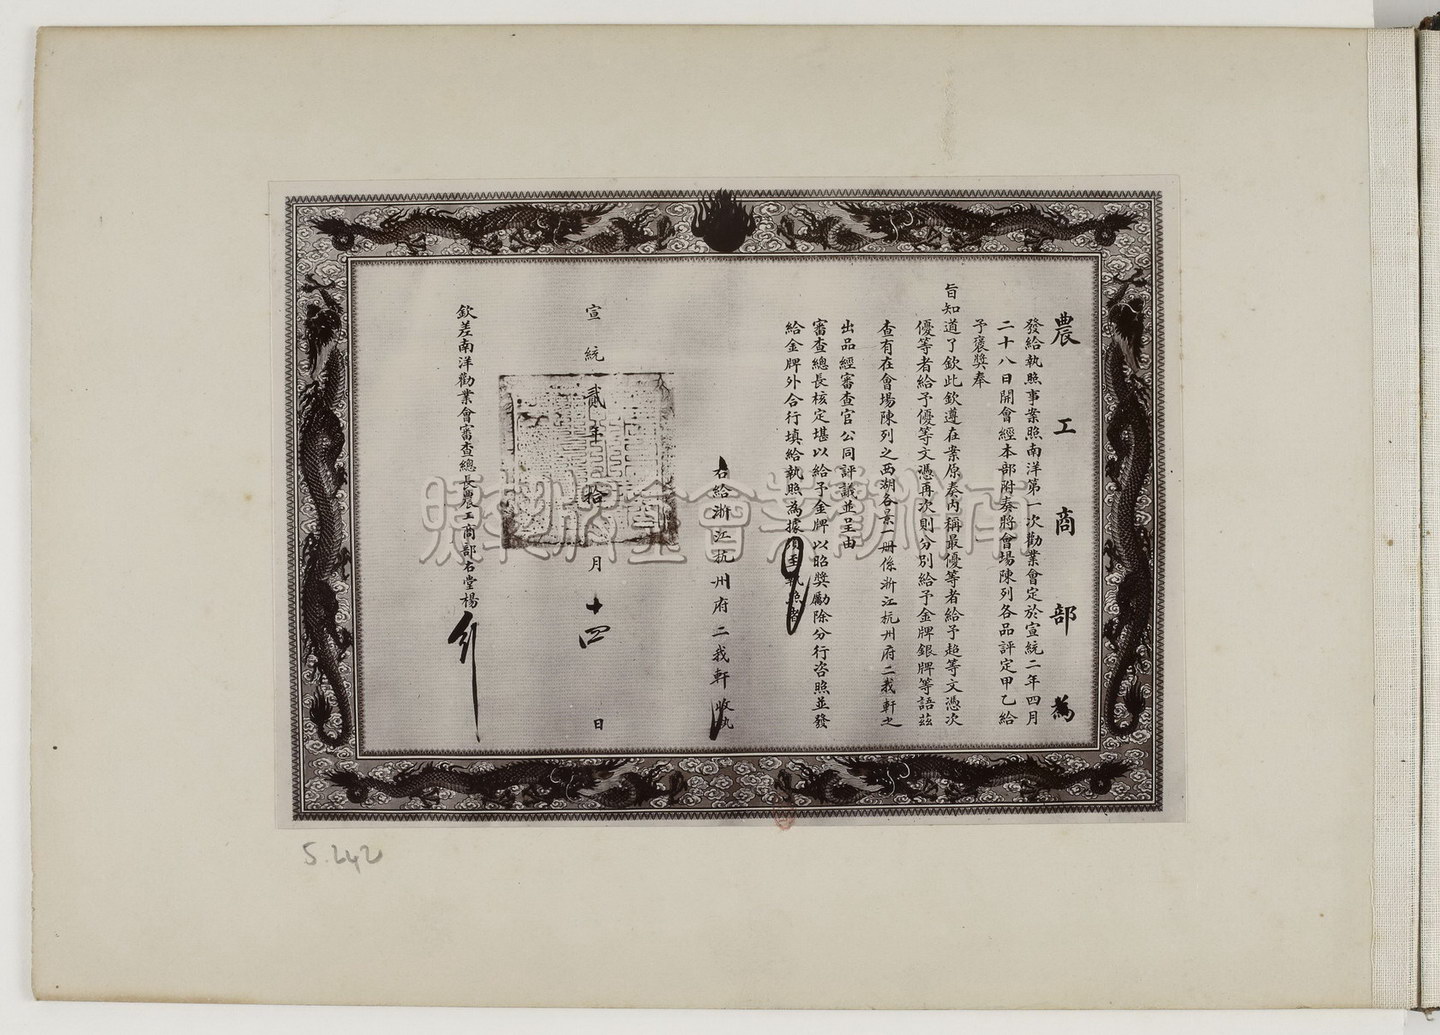 農工商部為
發給執照事業照南洋第一次勸業會定於宣統二年四月
二十八日開會經本部附奏將會場陳列各品評定甲乙給
予褒獎奉
旨知道了欽此欽遵在業原奏內稱最優等者給予超等文憑次
優等者給予優等文憑再次則分別給予金牌銀牌等語茲
查有在會場陳列之西湖各景一冊係浙江杭州府二我軒之
出品經審查官公同評議並呈由
審查總長核定堪以給予金牌以昭獎勵除分行咨照並發
給金牌外合行填給執照為據須至執照者
右給浙江杭州府二我軒收執
宣統貳年拾月十四日
欽差南洋勸業會審查總長農工商部右堂楊
S.242